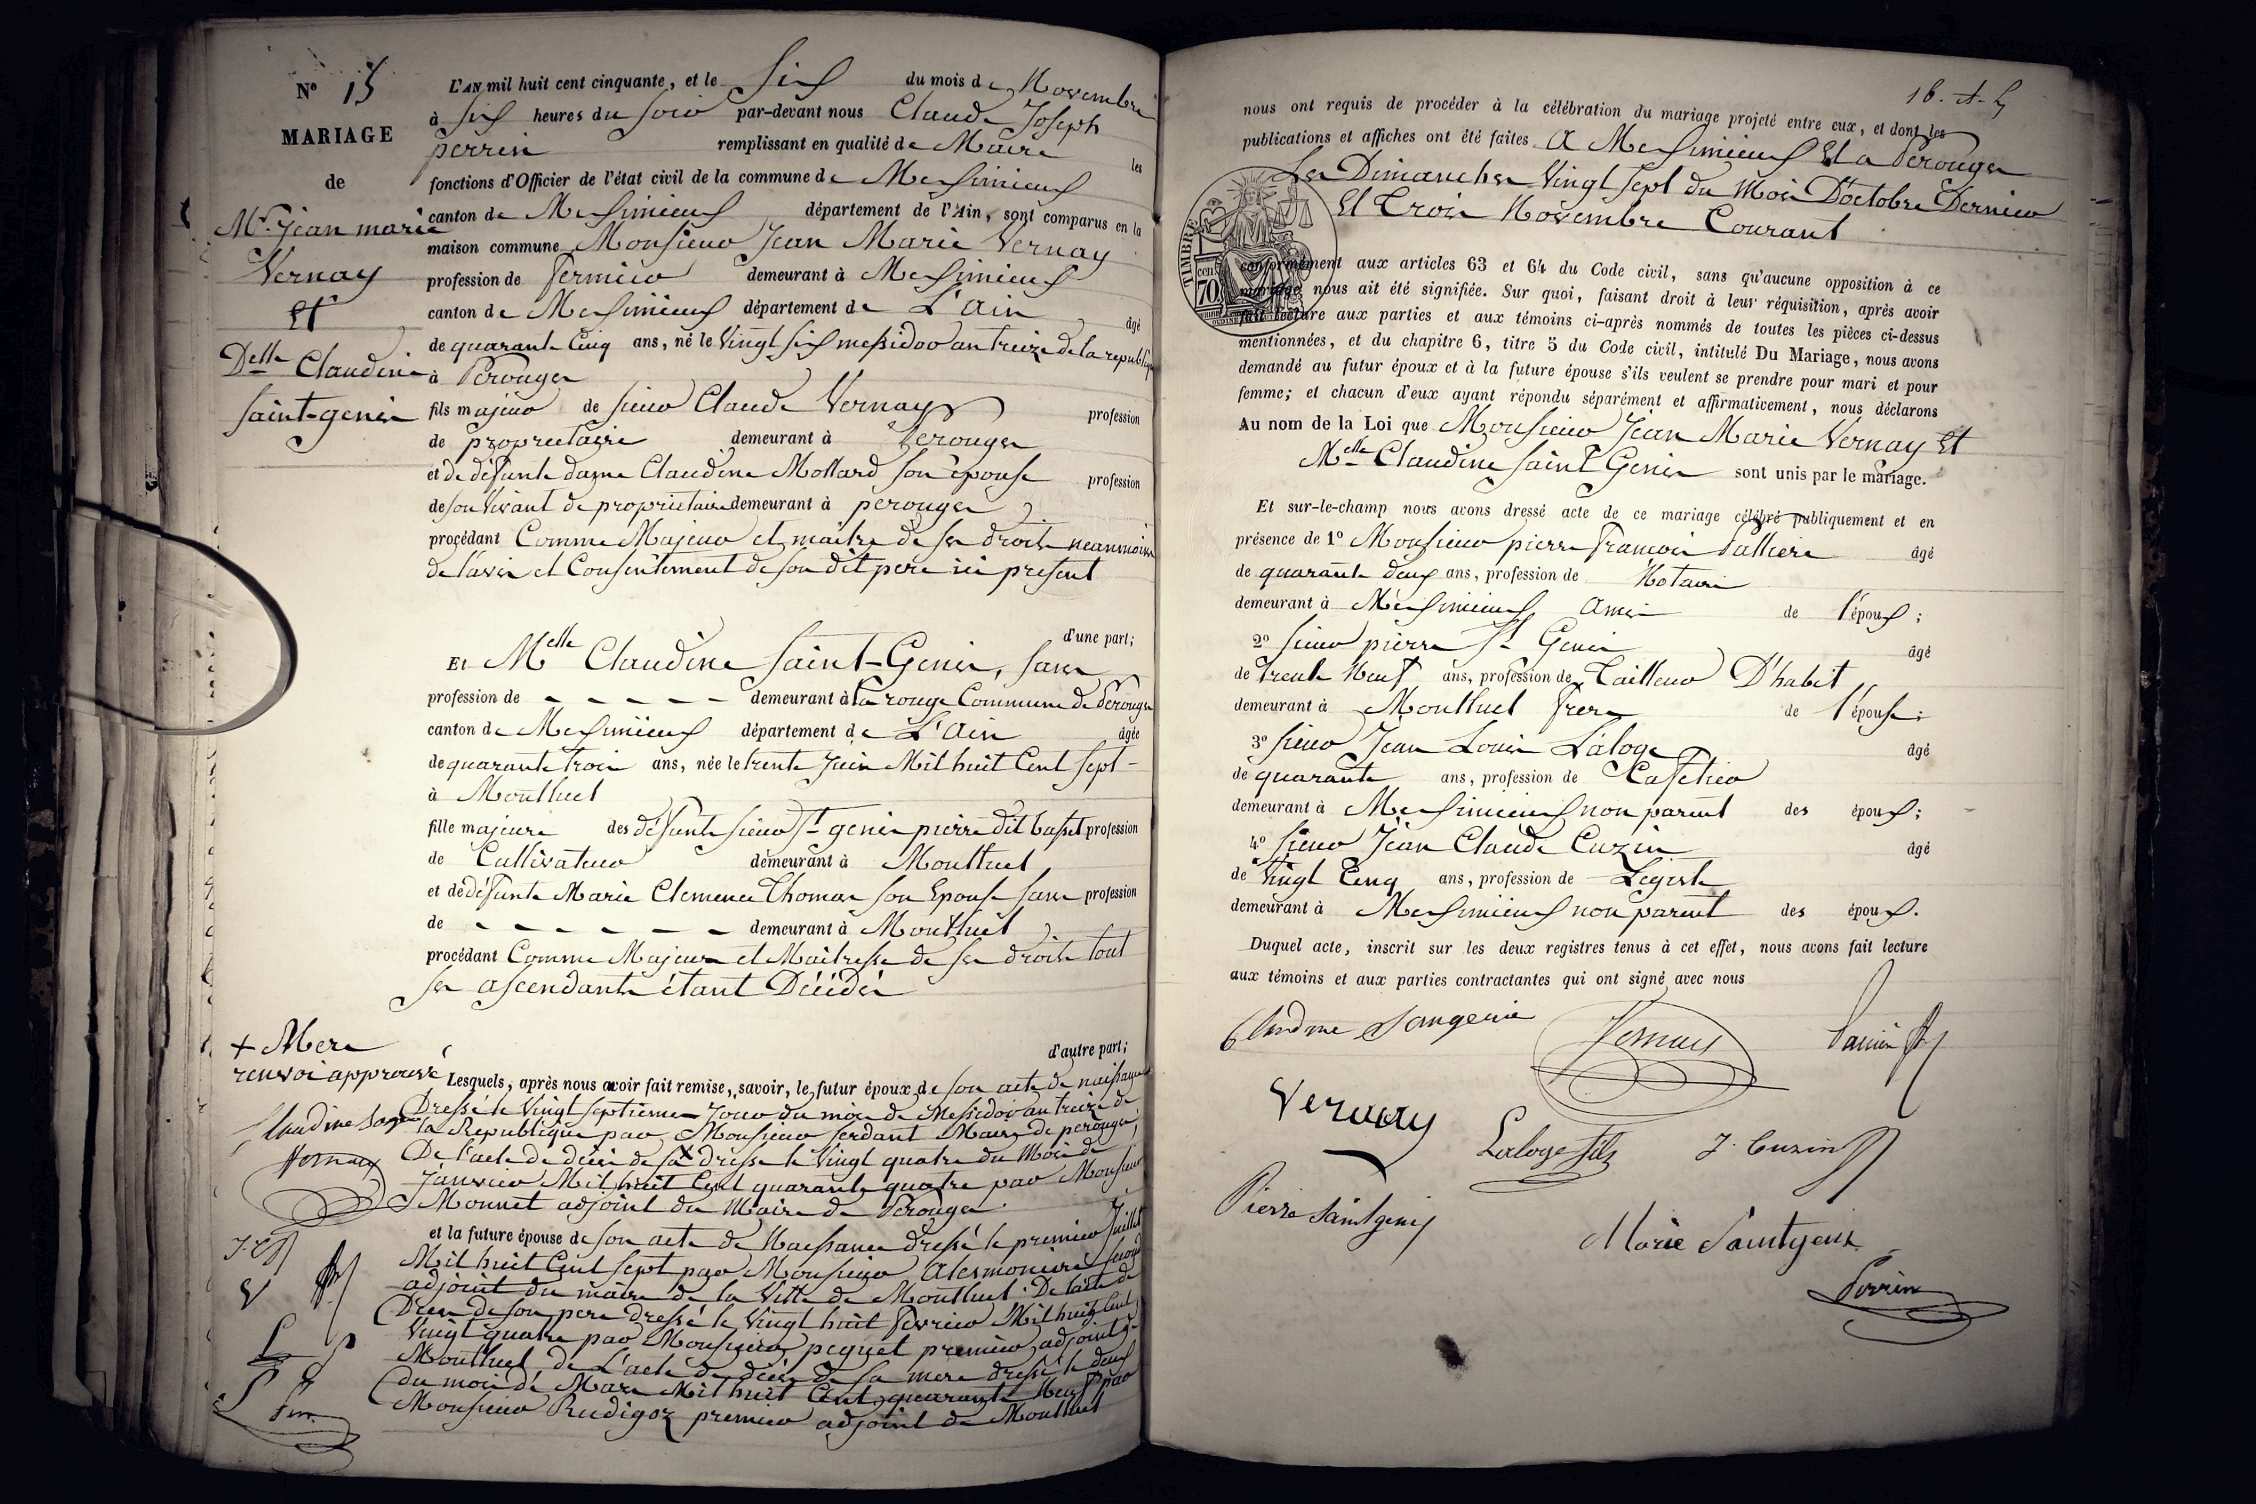 N° 15
MARIAGE
de
Mr. Jean marie
Vernay
Et
Delle Claudine
Saint-genis
L'AN mil huit cent cinquante, et le Six du mois de Novembre
à Six heures du Soir par-devant nous Claude Joseph
perrin remplissant en qualité de Maire les
fonctions d'Officier de l'état civil de la commune de Meximieux
canton de Meximieux département de l'Ain, sont comparus en la
maison commune Monsieur Jean Marie Vernay
profession de Fermier demeurant à Meximieux
canton de Meximieux département de L'Ain âgé
de quarante Cinq ans, né le Vingt six messidor an treize de la republique
à Perouges
fils majeur de sieur Claude Vernay profession
de proprietaire demeurant à Perouges
et de défunte dame Claudine Mollard son épouse profession
de son vivant de proprietaire demeurant à perouges
procédant Comme Majeur et maitre de ses droits neanmoins
de l'avis et Consentement de son dit pere ici present
d'une part;
Et Melle Claudine Saint-Genis, sans
profession de - - - - - demeurant à la rouge Commune de Perouges
canton de Meximieux département de L'Ain âgée
de quarante trois ans, née le trente Juin Mil huit Cent Sept -
à Montluel
fille majeure des défunts sieur St genis pierre dit basset profession
de Cultivateur demeurant à Montluel
et de défunte Marie Clemence Thomas son Epouse sans profession
de - - - - - - demeurant à Montluel
procédant Comme Majeure et Maitresse de ses droits tout
ses ascendants étant Décédés
d'autre part;
+ Mere
renvoi approuvé
Lesquels, après nous avoir fait remise, savoir, le futur époux de son acte de naissance
Dressé le Vingt septieme Jour du mois de Messidor an treize de
la Republique par Monsieur ferdant Maire de perouges;
De l'acte de décès de sa x dressé le Vingt quatre du Mois de
Janvier Mil huit Cent quarante quatre par Monsieur
Monnet adjoint du Maire de Perouges.
Vernay
et la future épouse de son acte de Naissance dressé le premier Juillet
Mil huit Cent Sept par Monsieur
adjoint du maire de la Ville de Montluel. De l'acte de
Décès de son pere dressé le Vingt huit Fevrier Mil huit Cent
Vingt quatre par Monsieur peguet premier adjoint de
Montluel, de L'acte de décès de sa mere dressé le deux
du mois de Mars Mil huit Cent quarante Neuf par
Monsieur Rudigoz premier adjoint de Montluel
nous ont requis de procéder à la célébration du mariage projeté entre eux, et dont les
publications et affiches ont été faites A Meximieux Et a Perouges
Les Dimanches Vingt Sept du Mois D'octobre Dernier
Et Trois Novembre Courant
TIMBRE
cen
70
conformément aux articles 63 et 64 du Code civil, sans qu'aucune opposition à ce
mariage nous ait été signifiée. Sur quoi, faisant droit à leur réquisition, après avoir
fait lecture aux parties et aux témoins ci-après nommés de toutes les pièces ci-dessus
mentionnées, et du chapitre 6, titre 5 du Code civil, intitulé Du Mariage, nous avons
demandé au futur époux et à la future épouse s'ils veulent se prendre pour mari et pour
femme; et chacun d'eux ayant répondu séparément et affirmativement, nous déclarons
Au nom de la Loi que Monsieur Jean Marie Vernay Et
Melle Claudine Saint Genis sont unis par le mariage.
Et sur-le-champ nous avons dressé acte de ce mariage célébré publiquement et en
présence de 1° Monsieur pierre Francois âgé
de quarante deux ans, profession de Notaire
demeurant à Meximieux amis de l'époux;
2° sieur pierre St Genis âgé
de trente Neuf ans, profession de Tailleur D'habit
demeurant à Montluel Frere de l'épouse;
3° sieur Jean Louis Laloge âgé
de quarante ans, profession de Cafetier
demeurant à Meximieux non parent des époux;
4° sieur Jean Claude Cuzin âgé
de Vingt Cinq ans, profession de Legiste
demeurant à Meximieux non parent des époux.
Duquel acte, inscrit sur les deux registres tenus à cet effet, nous avons fait lecture
aux témoins et aux parties contractantes qui ont signé avec nous
Claudine Sangenie
Vernay
Vernay
Laloge fils
J. Cuzin
Pierre Saintgenis
Marie Saintgenis
Perrin